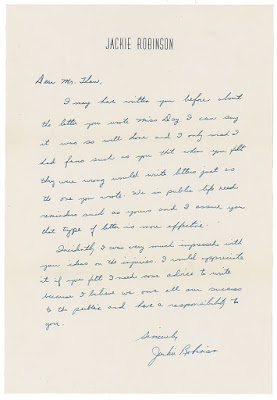 JACKIE ROBINSON
Dear Mr.
I may had written you before about
the letter you wrote Miss Day. I can say
it was so well done and I only wish I
had fans such as you that when you felt
they were wrong would write letters just as
the one you wrote. We in public life need
reminders such as yours and I assure you
that type of letter is more effective.
Incidently I was very much impressed with
your ideas on the injuries. I would appreciate
it if you felt I need some advice to write
because I believe we owe all our success
to the public and have a responsibility to
you.
Sincerely
Jackie Robinson